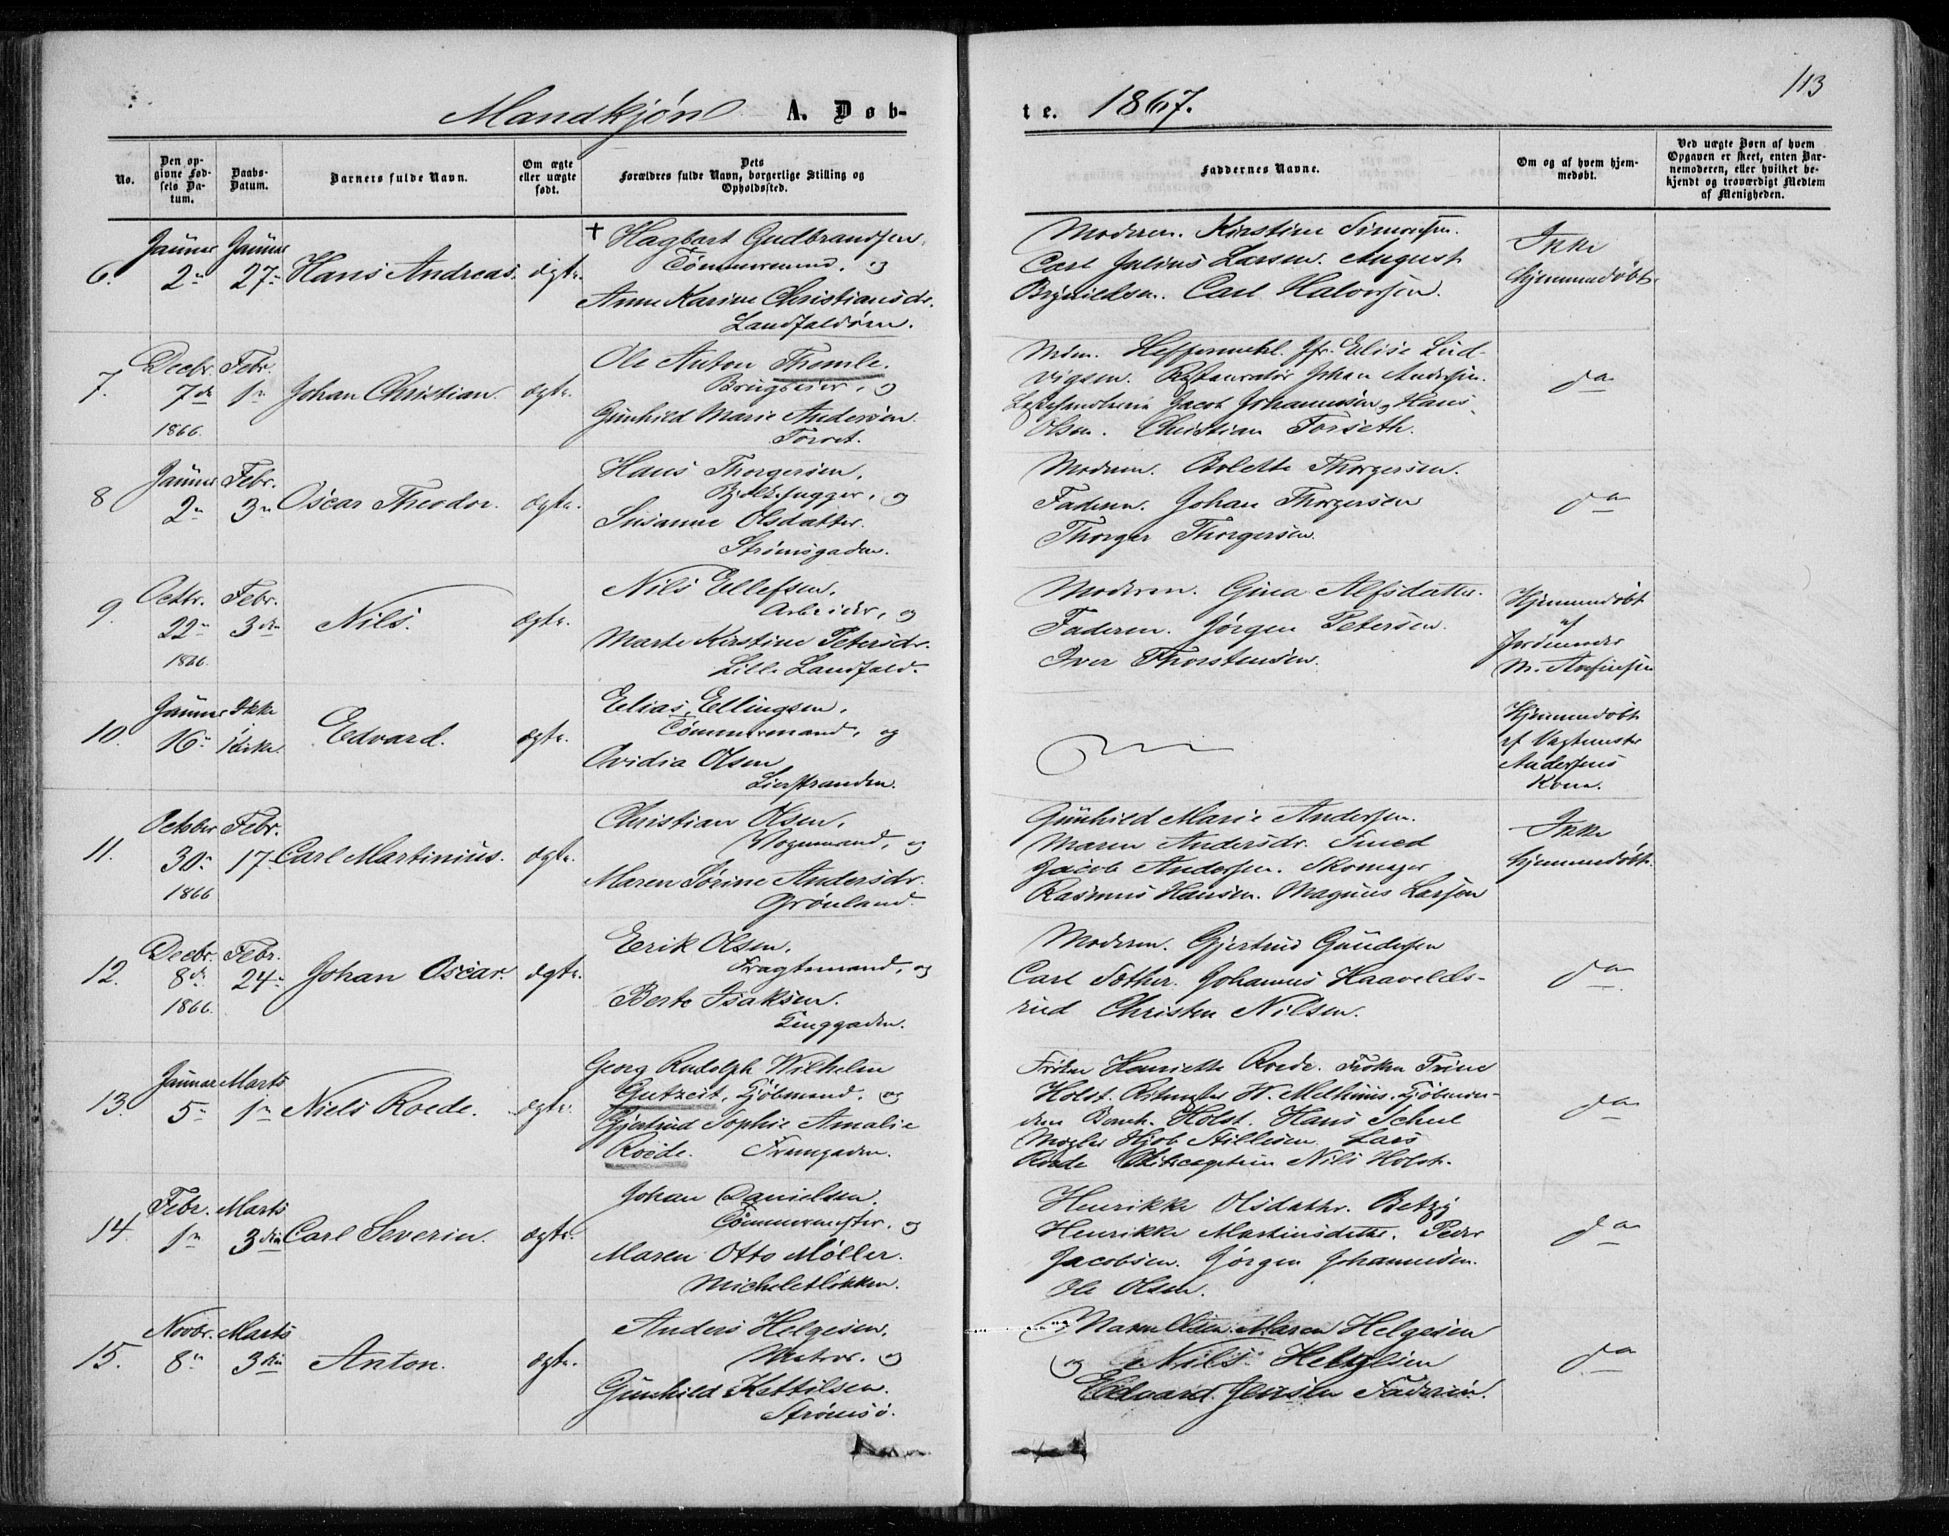 113
Mandkjøn A. Døb-
te. 1867.
No.
Den op-
givne Fød-
sels Da-
tum.
Daabs-
Datum.
Barnets fulde Navn.
Om ægte
eller uægte
født.
Dets
Forældres fulde Navn, borgerlige Stilling og
Opholdssted.
Faddernes Navne.
Om og af hvem hjem-
medøbt.
Ved uægte Børn af hvem
Opgaven er skeet, enten Bar-
nemoderen, eller hvilket be-
kjendt og troværdigt Medlem
af Menigheden.
6. Januar 2 Januar 27 Hans Andreas. ægte.
† Hagbart Gudbrandsen,
Tømmermand, og
Anne Karine Christiansdr.
Landfaldøen.
Moderen. Kirstine Simonsen.
Carl Julius Larsen. August
Brynildsen. Carl Halvorsen.
Ikke
hjemmedøbt.
7. Decbr. 7de 1866. Febr. 1 Johan Christian. ægte.
Ole Anton Themle,
og
Gunhild Marie Andersen.
Torvet.
Mdm. Heffermehl. Jfr. Elise Lud-
vigsen. Restauratør Johan Andersen.
Jacob Johannessen, Hans
Olsen. Christian Forseth.
do
8 Januar 2 Febr. 3 Oscar Theodor. ægte.
Hans Thorgersen,
Bjelkehugger, og
Susanne Olsdatter.
Strømsgaden.
Moderen. Bolette Thorgersen.
Faderen. Johan Thorgersen
Thorger Thorgersen.
do
9. Octbr. 22 1866. Febr. 3die Nils. ægte.
Nils Ellefsen,
Arbeider, og
Marte Kirstine Petersdr.
Lille Landfald.
Moderen. Gina Alfsdatter.
Faderen. Jørgen Petersen.
Iver Thorstensen.
Hjemmedøbt
af
Jordemoder
M.
10. Januar 16 Ikke i Kirke. Edvard. ægte.
Elias Ellingsen,
Tømmermand, og
Ovidia Olsen
Lierstranden.
Hjemmedøbt
af Vagtmester
Andersens
Kone.
11. October 30 1866 Febr. 17 Carl Martinius. ægte.
Christian Olsen,
Vognmand, og
Maren Sørine Andersdr.
Grønland.
Gunhild Marie Andersen.
Maren Andersdr. Smed
Jacob Andersen. Skomager
Rasmus Hansen. Magnus Larsen
Ikke
hjemmedøbt.
12. Decbr. 8de 1866. Febr. 24 Johan Oscar. ægte.
Eerik Olsen,
Fragtemand, og
Berte Isaksen.
Tinggaden.
Moderen. Gjertrud Gundersen
Carl Sæther. Johannes Haavelds-
rud Christen Nilsen.
do
13. Januar 5 Marts 1 Niels Roede. ægte.
Georg Rudolph Wilhelm
Gutzeit, Kjøbmand, og
Gjertrud Sophie Amalie
Roede. Fremgaden.
Frøken Henriette Roede. Frøken Trine
Holst. W. Melhuus. Kjøbmæn-
dene Holst. Hans Schee
Mægler Stillesen. Lars
Roede Nils Holst.
do
14. Febr. 1 Marts 3die Carl Severin. ægte.
Johan Danielsen,
Tømmermester, og
Maren Otto Møller.
Micheletløkken.
Henrikke Olsdatter. Betzy
Henrikke Martinsdatter. Peder
Jacobsen. Jørgen Johannesen.
Ole Olsen.
do
15. Novbr. 8 Marts 3die Anton. ægte.
Anders Helgesen,
Matros, og
Gunhild Kettilsen.
Strømsø.
Maren Olsen. Maren Helgesen
og Nils Helgesen
Edvard Jensen Faderen.
do